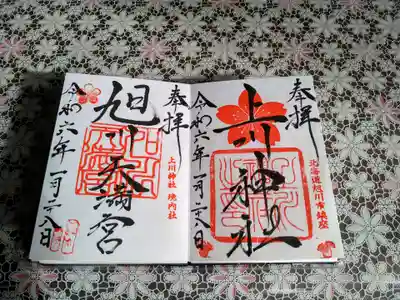 奉拝
北海道旭川市鎮座
上川神社
令和六年一月二八日
奉拝
上川神社 境内社
旭川天満宮
令和六年一月二八日